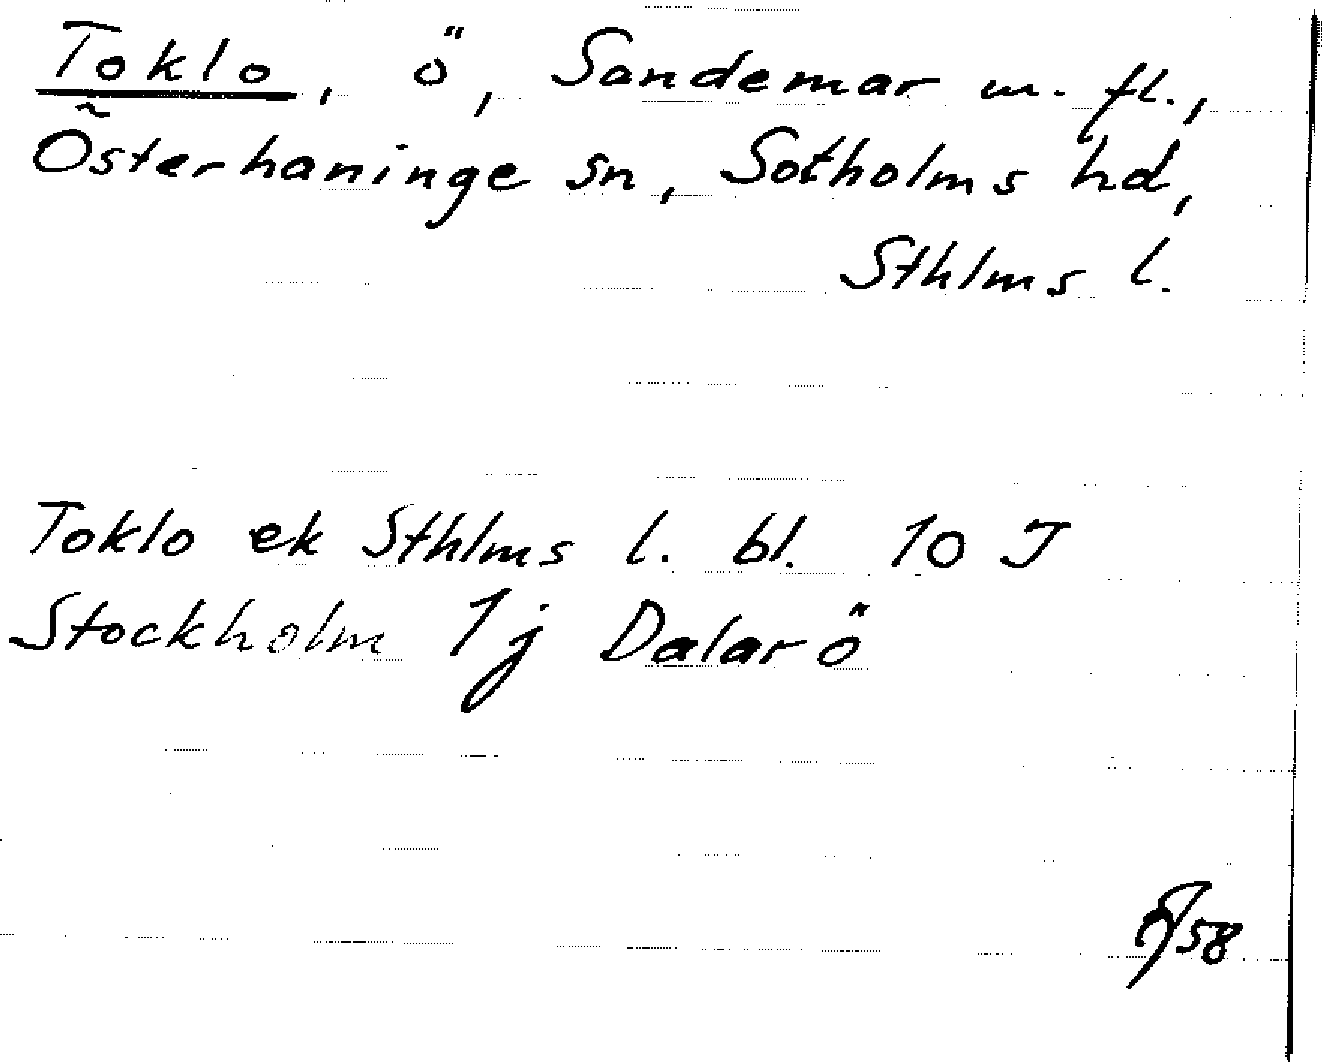 Toklo, ö, Sandemar m. fl.,
Österhaninge sn, Sotholms hd,
Sthlms l.
Toklo ek Sthlms l. bl. 10 J
Stockholm 1j Dalarö
58